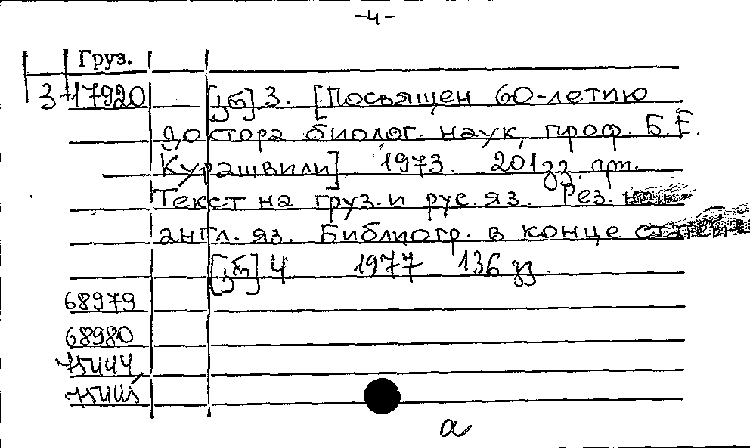 -4-
Груз.
3 17920 3. [Посвящен 60-летию
доктора биолог. наук, проф. Б.Е.
Курашвили] 1973. 201 გვ.
Текст на груз. и рус. яз. Рез. на
англ. яз. Библиогр. в конце
4 1977 136 გვ
68979
68980
75444
а